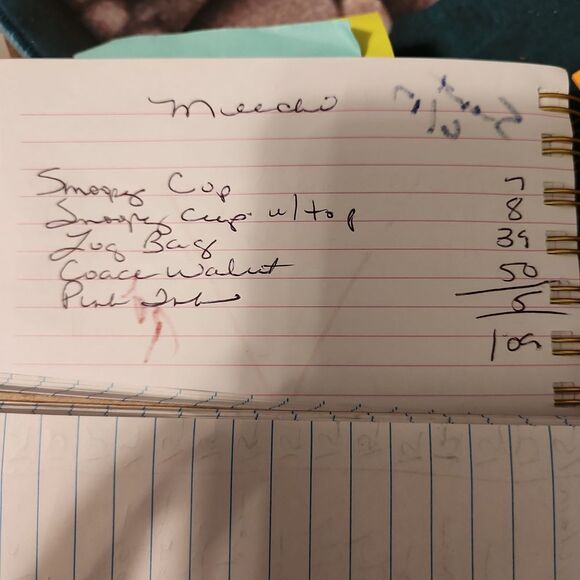 Snoopy Cup 7
Snoopy cup w/top 8
Lug Bag 39
Coach Walet 50
Pink 5
109